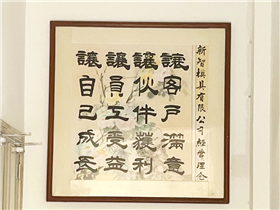 新智模具有限公司經營理念
讓客戶滿意
讓伙伴獲利
讓員工受益
讓自己成長